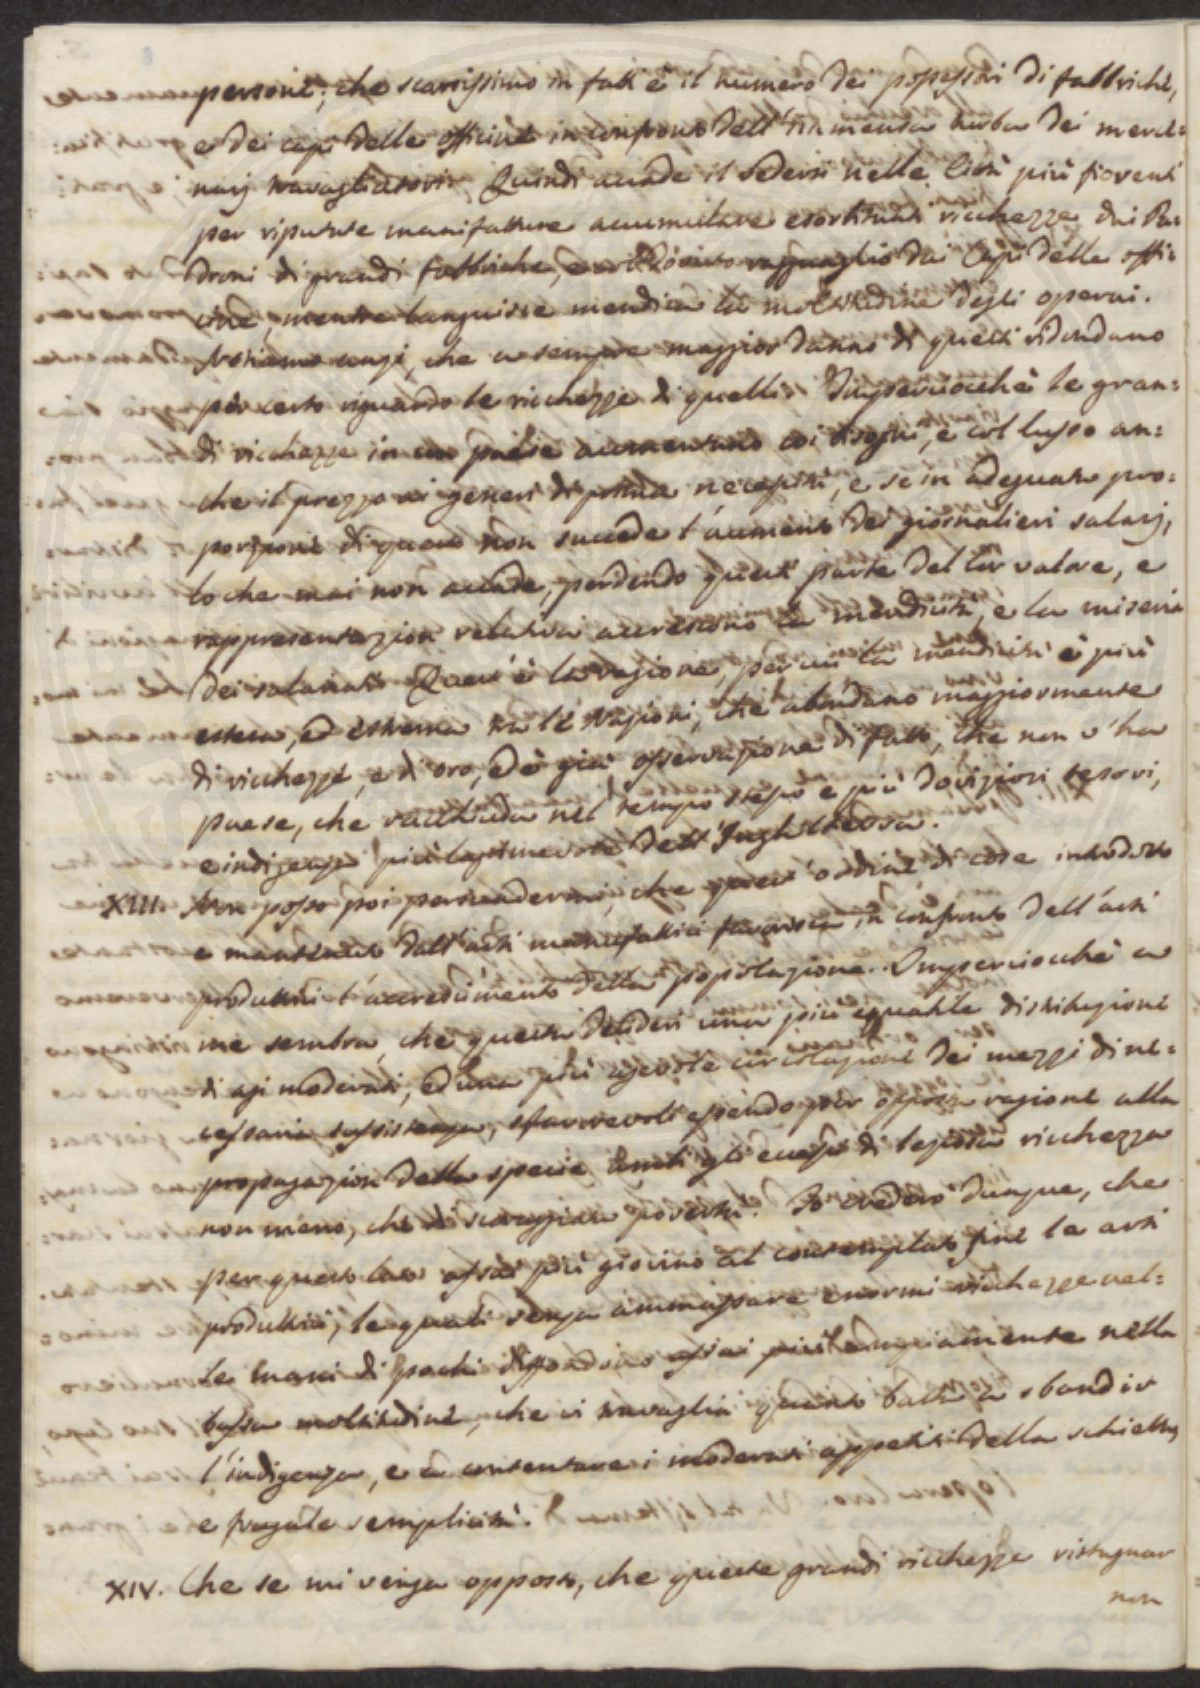 persone; che scarsissimo in fatti è il numero dei possessori di fabbriche,
e dei capi delle officine in confronto dell'immensa turba dei merce=
narj travagliatori. Quindi accade il vedersi nelle Città più fiorenti
per riputate manifatture accumulare esorbitanti ricchezze dai Pa=
droni di grandi fabbriche, ragguaglio dai Capi delle offi=
cine, mentre languisce mendica la moltitudine degli operai.
Notiamo anzi, che a sempre maggior danno di questi ridondano
per certo riguardo le ricchezze di quelli. Imperciocchè le gran=
di ricchezze in un paese aumentano coi bisogni, e col lusso an=
che il prezzo ai generi di prima necessità, e se in adeguata pro=
porzione di questo non succede l'aumento dei giornalieri salarj,
lo che mai non accade, perdendo questi parte del lor valore, e
rappresentazion relativa accrescono la mendicità, e la miseria
dei salariati. Quest'è la ragione, per cui la mendicità è più
estesa, ed estrema tra le Nazioni, che abondano maggiormente
di ricchezze, e di oro, ed è già osservazione di fatto, che non v'ha
paese, che racchiuda nel tempo stesso e più doviziosi tesori,
e indigenza più lagrimevole dell'Inghilterra.
XIII. Non posso poi persuadermi, che quest'ordine di cose introdotto
e mantenuto dall'arti manifattrici favorisca in confronto dell'arti
produttrici l'accrescimento della popolazione. Imperciocchè a
me sembra, che questa desideri una più equabile distribuzione
di agi moderati, ed una più agevole circolazione dei mezzi di ne=
cessaria sussistenza, sfavorevoli essendo per opposta ragione alla
propagazion della specie umana gli eccessi di ricchezza
non meno, che di povertà. Io crederò dunque, che
per questo lato assai più giovino al contemplato fine le arti
produttrici, le quali senza ammassare enormi ricchezze nel=
le mani di pochi diffondono assai più ampiamente nella
bassa moltitudine, che vi travaglia quanto basti a sbandir
l'indigenza, e a contentare i moderati appetiti della schietta,
e frugale semplicità.
XIV. Che se mi venga opposto, che queste grandi ricchezze ristagnar
non